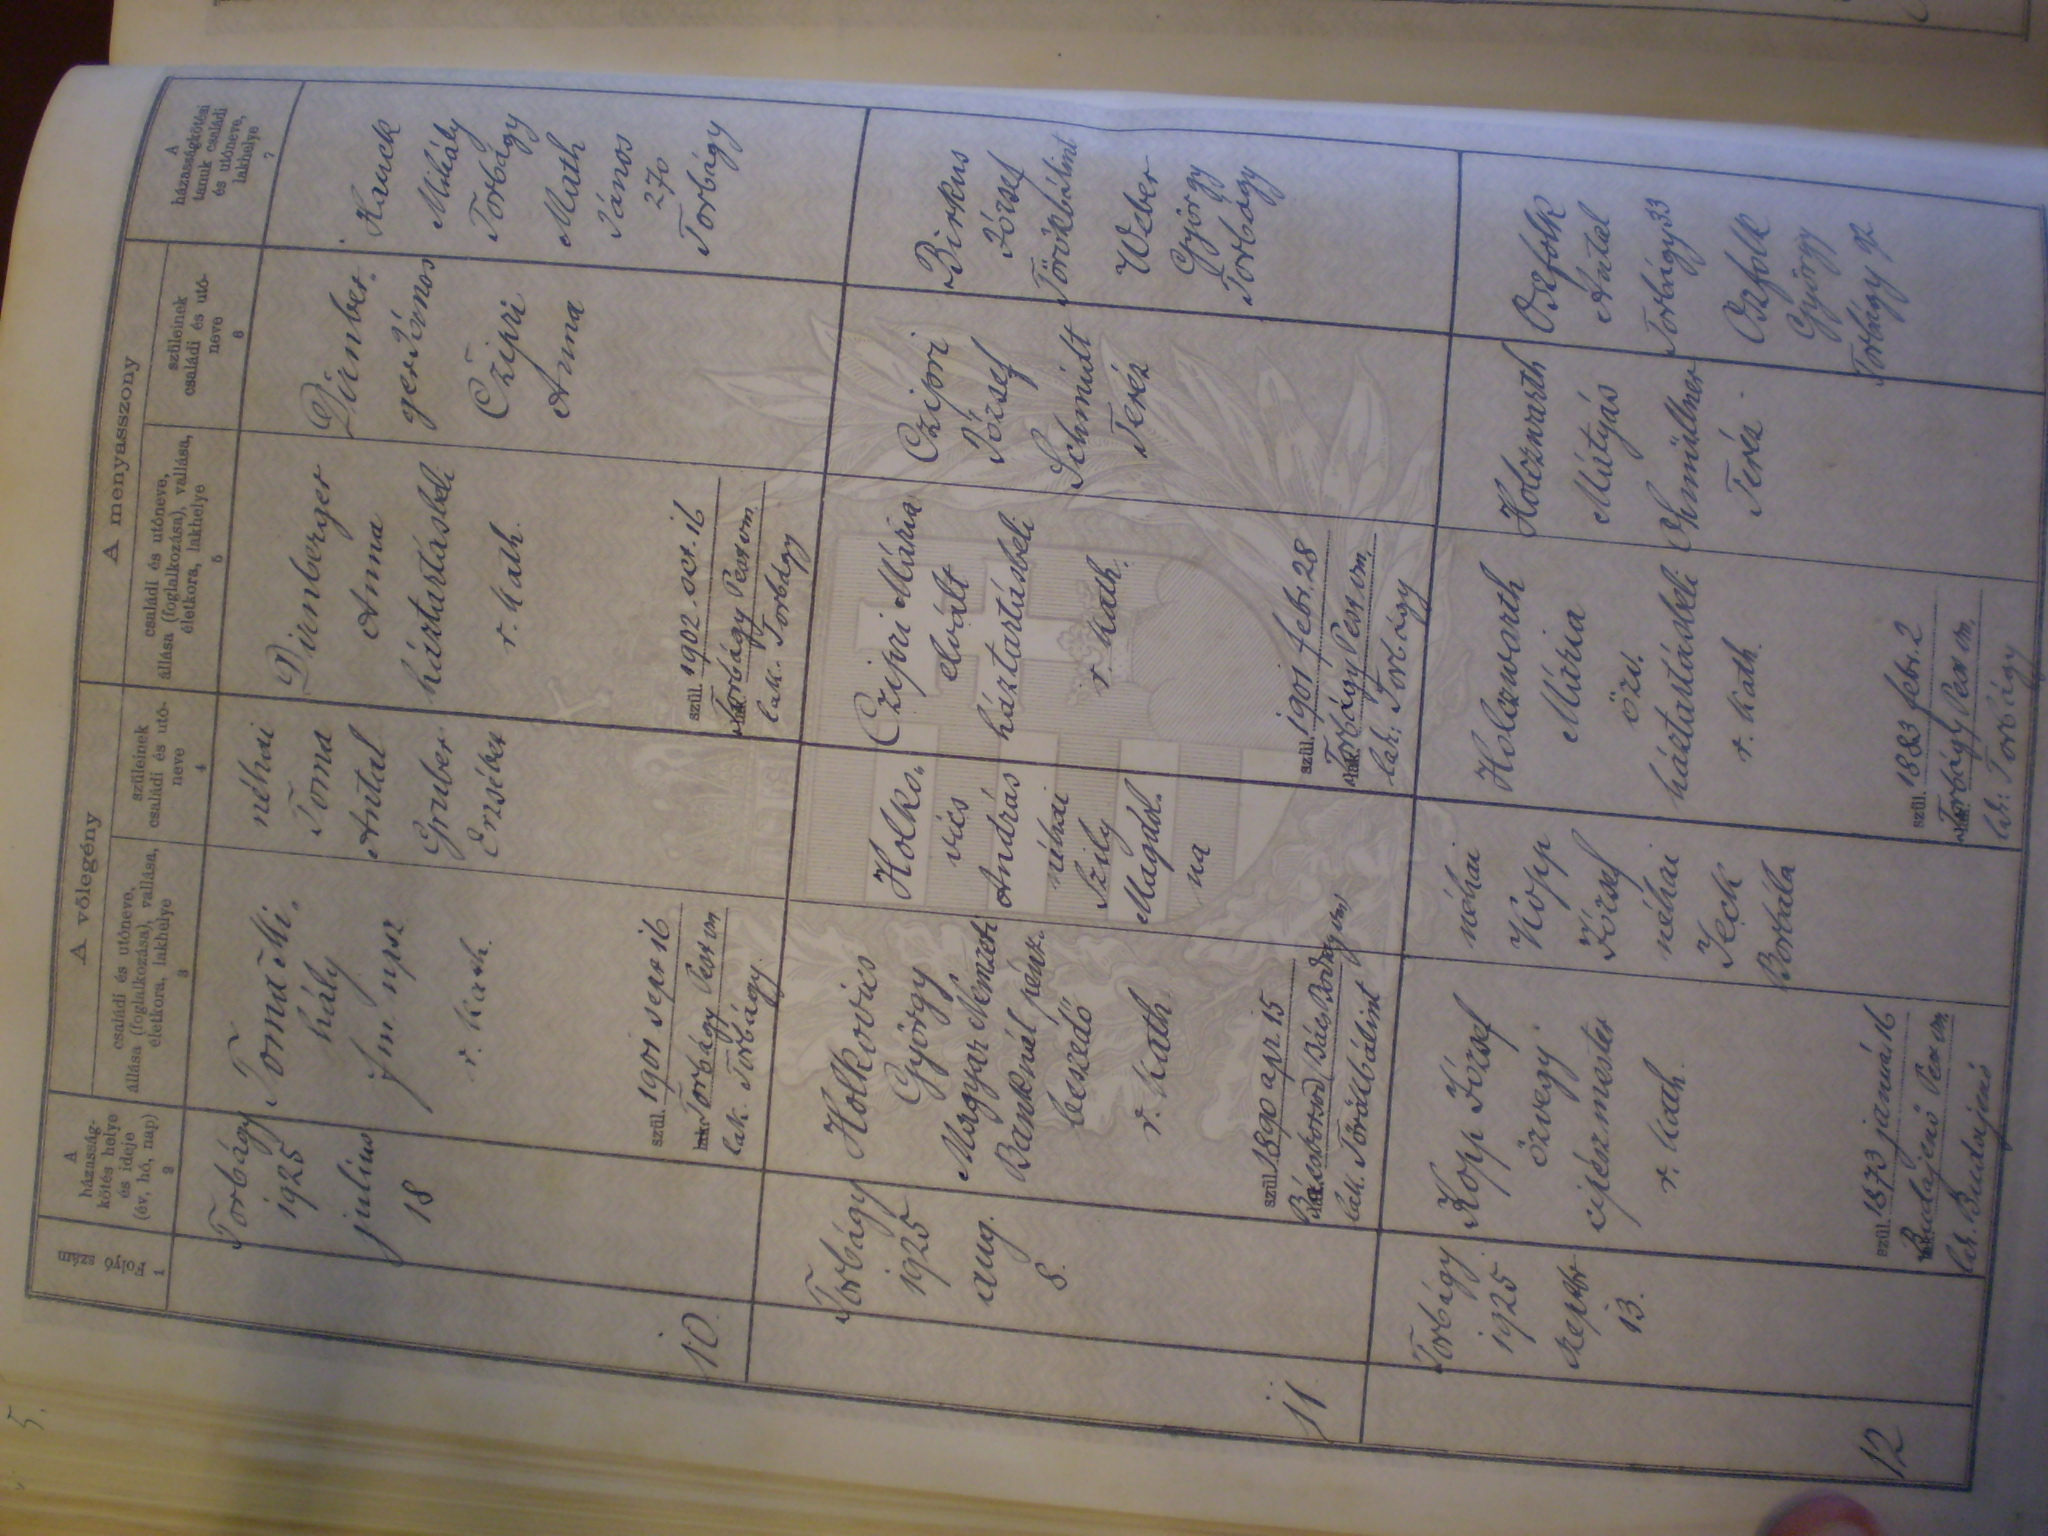 5.
A vőlegény
A menyasszony
Folyó szám
1
A
házasság-
kötés helye
és ideje
(év, hó, nap)
2
családi és utóneve,
állása (foglalkozása), vallása,
életkora, lakhelye
3
szüleinek
családi és utó-
neve
4
családi és utóneve,
állása (foglalkozása), vallása,
életkora, lakhelye
5
szüleinek
családi és utó-
neve
6
A
házasságkötési
tanuk családi
és utóneve,
lakhelye
7
10.
Torbágy
1925
julius
18
Toma Mi-
hály
fm. npsz
r. kath.
szül. 1901 sept 16
Torbágy Pest vm
lak. Torbágy.
néhai
Toma
Antal
Gruber
Erzsébet
Dinnberger
Anna
háztartásbeli
r. kath.
szül. 1902. oct. 16
Torbágy Pest vm.
lak. Torbágy
Dinnber-
ger János
Czipri
Anna
Hauck
Mihály
Torbágy
Muth
János
270
Torbágy
11
Torbágy
1925
aug.
8.
Holkovics
György
Magyar Nemzeti
Banknál pénz-
beszedő
r. kath.
szül. 1890 apr. 15
Bácsborsod (Bács Bodrog vm)
lak. Törökbálint
Holko-
vics
András
néhai
Szily
Magdol-
na
Czipri Mária
elvált
háztartásbeli
r. kath.
szül. 1901 febr. 28
Torbágy Pest vm.
lak: Torbágy
Czipri
József
Schmidt
Teréz
Birkus
József
Törökbálint
Weber
György
Torbágy
12
Torbágy
1925
szeptbr
13.
Kopp József
özvegy
cipészmester
r. kath.
szül. 1873 január 16
Budajenő Pest vm
lak. Budajenő
néhai
Kopp
József
néhai
Jeck
Borbála
Holczwarth
Mária
özv.
háztartásbeli
r. kath.
szül. 1883 febr. 2
Torbágy Pest vm.
lak: Torbágy
Holczwarth
Mátyás
Ohmüllner
Teréz
Oszfolk
Antal
Torbágy 33
Oszfolk
György
Torbágy 92